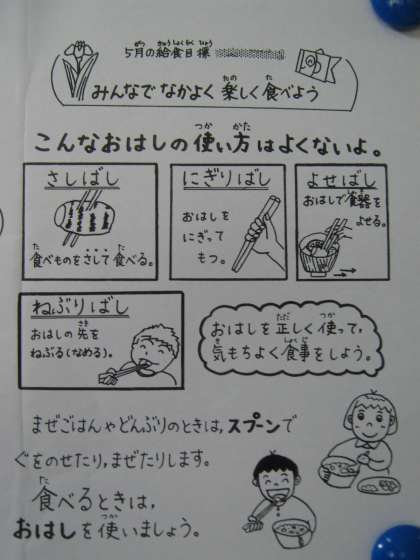 5月の給食目標
みんなで なかよく 楽しく 食べよう
こんなおはしの使い方はよくないよ。
さしばし
食べものをさして食べる。
にぎりばし
おはしを
にぎって
もつ。
よせばし
おはしで食器を
よせる。
ねぶりばし
おはしの先を
ねぶる(なめる)。
おはしを正しく使って、
気もちよく食事をしよう。
まぜごはんやどんぶりのときは、スプーンで
ぐをのせたり、まぜたりします。
食べるときは、
おはしを使いましょう。